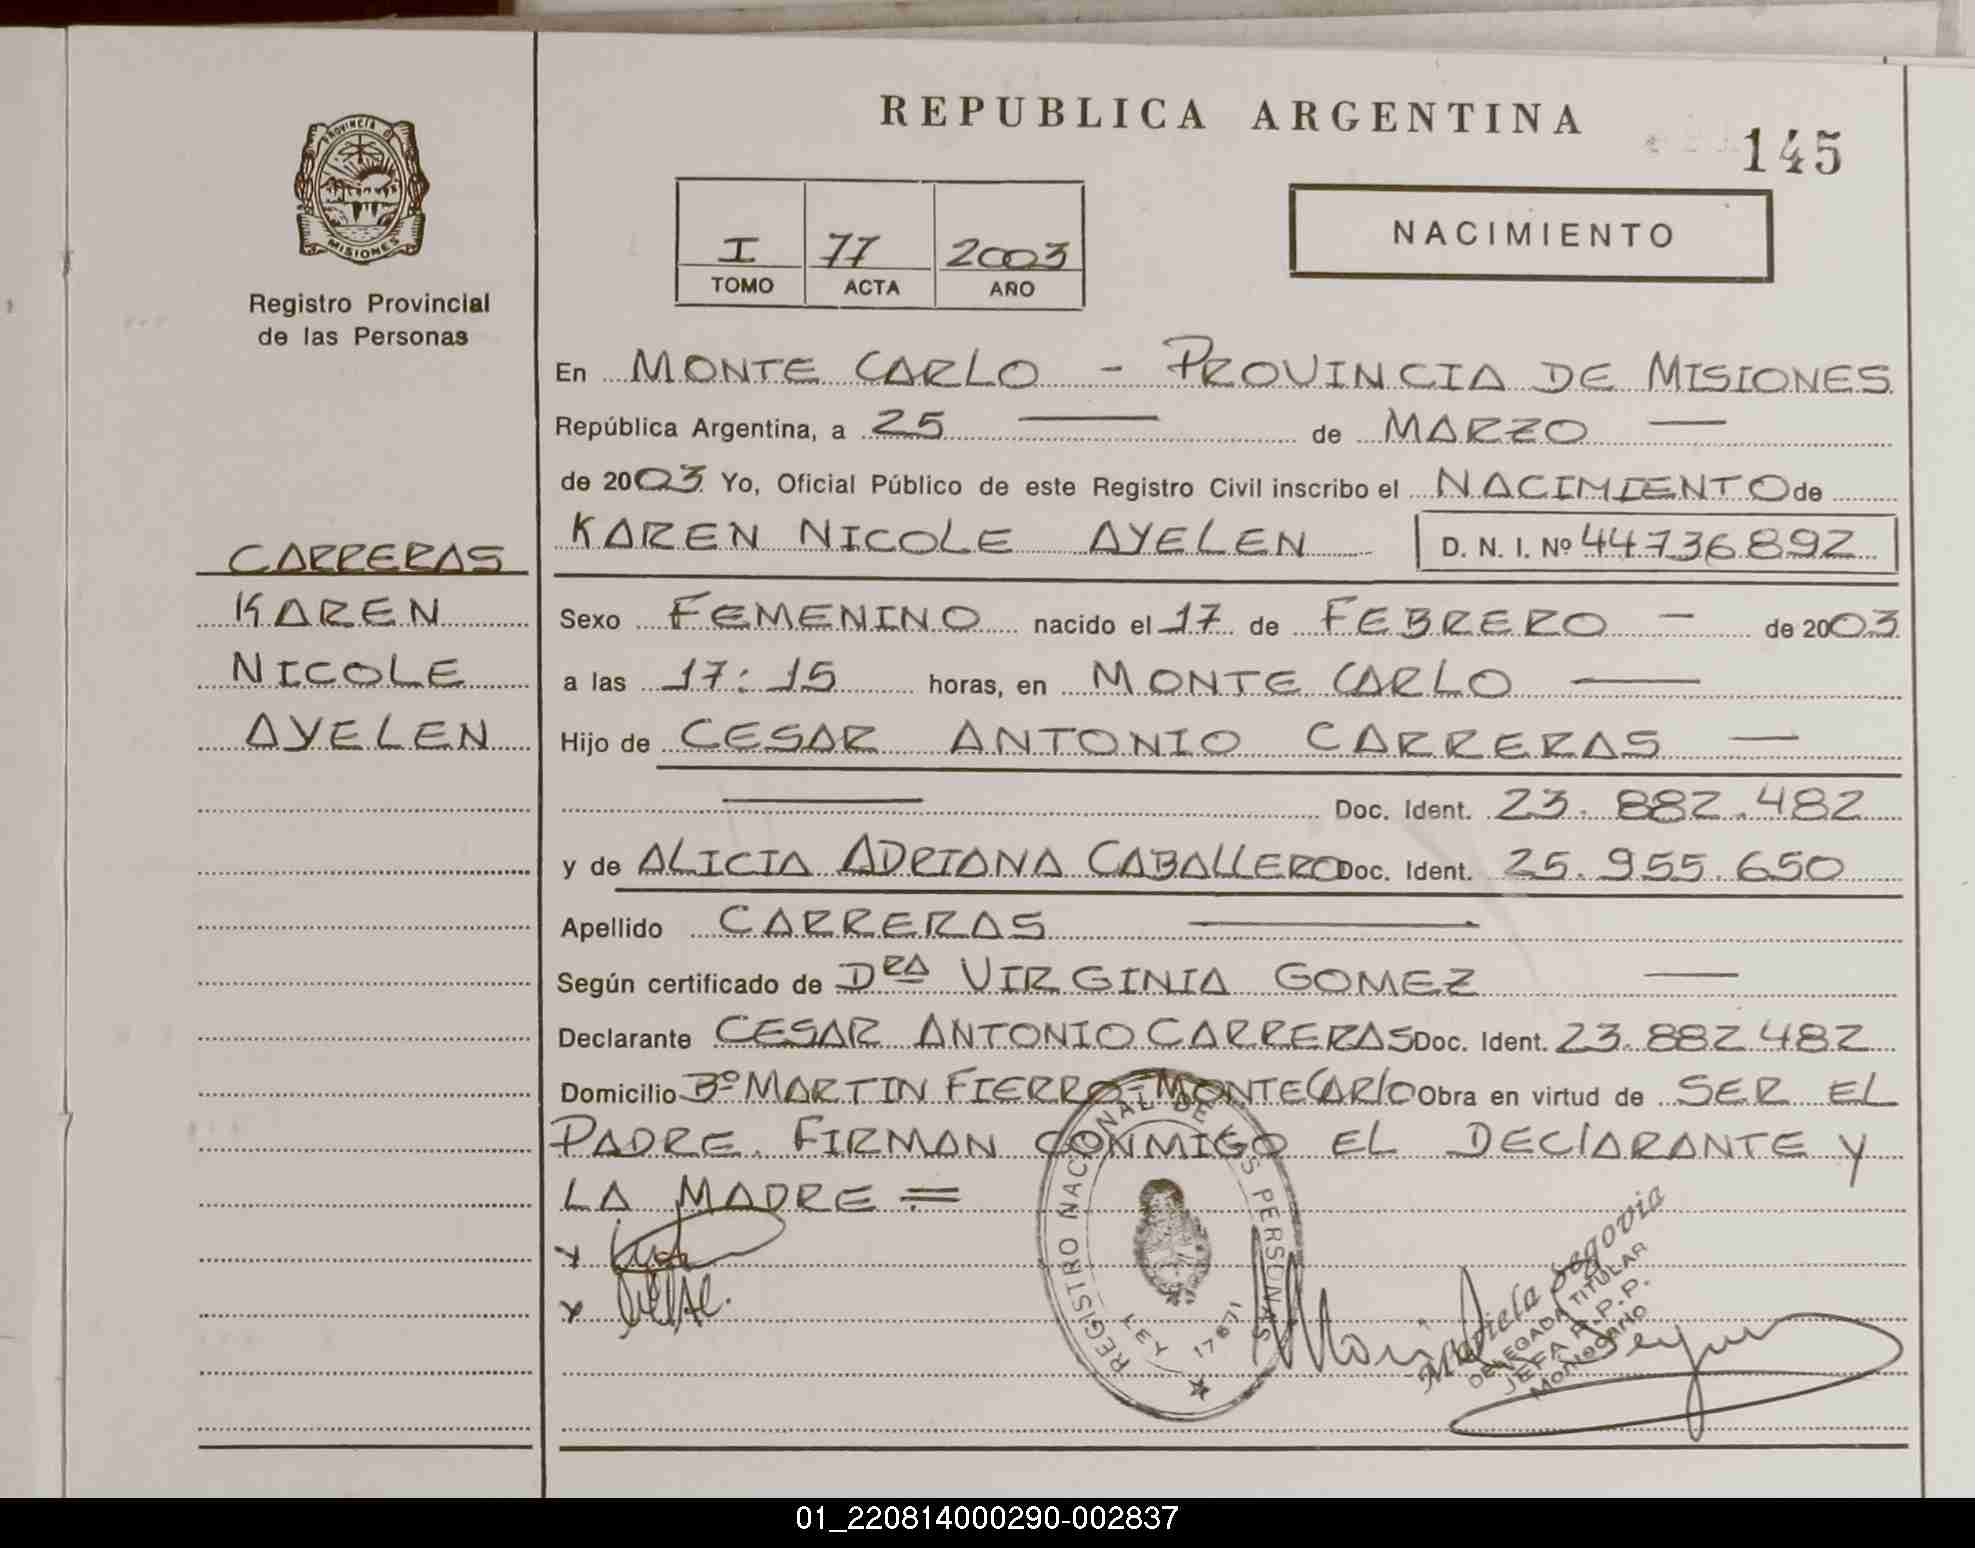 REPUBLICA ARGENTINA
145
PROVINCIA D
MISIONES
Registro Provincial
de las Personas
I 77 2003
TOMO ACTA AÑO
NACIMIENTO
En MONTE CARLO - PROVINCIA DE MISIONES
República Argentina, a 25 — de MARZO —
de 2003 Yo, Oficial Público de este Registro Civil inscribo el NACIMIENTO de
KAREN NICOLE AYELEN D. N. I. Nº 44736892
CARRERAS
KAREN
NICOLE
AYELEN
Sexo FEMENINO nacido el 17 de FEBRERO — de 2003
a las 17:15 horas, en MONTE CARLO —
Hijo de CESAR ANTONIO CARRERAS —
— Doc. Ident. 23.882.482
y de ALICIA ADRIANA CABALLERO Doc. Ident. 25.955.650
Apellido CARRERAS —
Según certificado de DRA VIRGINIA GOMEZ —
Declarante CESAR ANTONIO CARRERAS Doc. Ident. 23.882482
Domicilio Bº MARTIN FIERRO-MONTECARLO Obra en virtud de SER EL
PADRE. FIRMAN CONMIGO EL DECLARANTE Y
LA MADRE =
REGISTRO NACIONAL DE LAS PERSONAS
LEY 17671
Mariela Segovia
DELEGADA TITULAR
JEFA R.P.P.
Montecarlo
01_220814000290-002837